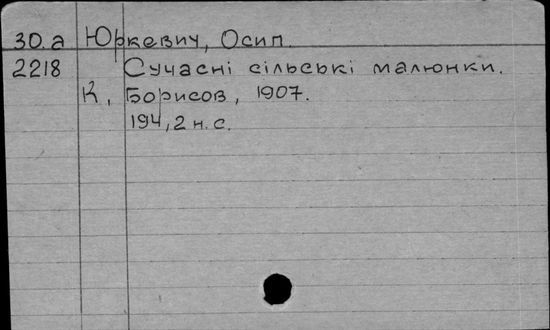 30.а Юркевич, Осип.
2218 Сучасні сільські малюнки.
К, Борисов, 1907.
194, 2 н. с.